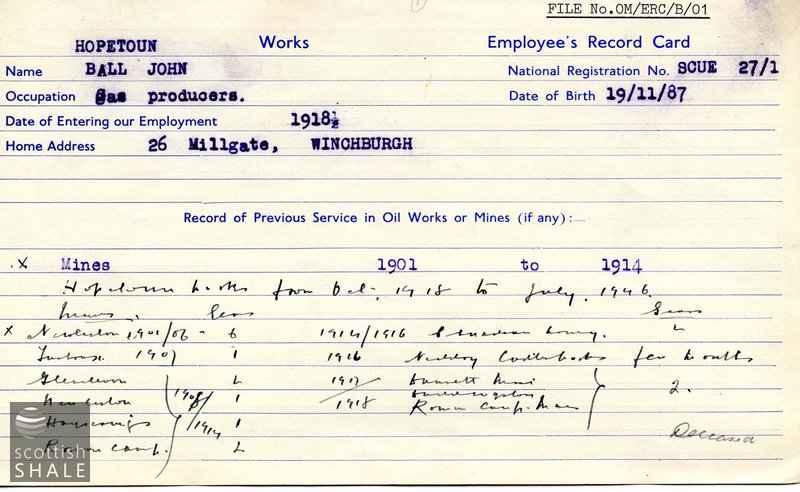 FILE No.OM/ERC/B/01
HOPETOUN Works Employee's Record Card
Name BALL JOHN National Registration No. SCUE 27/1
Occupation Gas producers. Date of Birth 19/11/87
Date of Entering our Employment 1918½
Home Address 26 Millgate, WINCHBURGH
Record of Previous Service in Oil Works or Mines (if any):—
x Mines 1901 to 1914
Hopetoun Works from Oct. 1918 to July, 1946.
Years
x Newliston, 1901/06 - 6 1914/1916 Army.
1907 1 1916 Niddry few months
2 1917 Mines 2.
Newliston 1908/1914 1 1918 Roman Camp. Mines
1
Roman Camp. 2
Deceased
scottish
SHALE